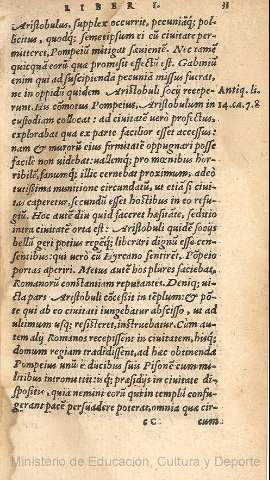 LIBER I. 31
Aristobulus, supplex occurrit, pecuniāq; pol-
licitus, quodq; semetipsum ei cū ciuitate per-
mitteret, Pompeiū mitigat sæuientē. Nec tamē
quicquā eorū quæ promisit effectū est. Gabiniū
enim qui ad suscipienda pecunia missus fuerat,
ne in oppidū quidem Aristobuli socij recepe- Antiq. li.
runt. His cōmotus Pompeius, Aristobulum in 14. ca. 7. 8
custodiam collocat: ad ciuitatē uerò profectus,
explorabat qua ex parte facilior esset accessus:
nam & murorū eius firmitatē oppugnari posse
facile non uidebat: uallemq; pro mœnibus hor-
ribilē, fanumq; illic cernebat proximum, adeò
tutissima munitione circundatū, ut etiā si ciui-
tas caperetur, secundū esset hostibus in eo refu-
giū. Hoc autē diu quid faceret hæsitate, seditio
intra ciuitatē orta est: Aristobuli quidē socijs
bellū geri potius regēq; liberari dignū esse cen-
sentibus: qui uerò cū Hyrcano sentirēt, Pōpeio
portas aperiri. Metus autē hos plures faciebat,
Romanorū constantiam reputantes. Deniq; ui-
cta pars Aristobuli cōcessit in templum: & pō-
te qui ab eo ciuitati iungebatur abscisso, ut ad
ultimum usq; resisteret, instruebatur. Cum au-
tem alij Romanos recepissent in ciuitatem, hisq;
domum regiam tradidissent, ad hæc obtinenda
Pompeius unū è ducibus suis Pisonē cum mi-
litibus intromittit: is q; præsidijs in ciuitate di-
spositis, quia nemini eorū qui in templū confu-
gerant pacē persuadere poterat, omnia quæ cir-
cc cum-
Ministerio de Educación, Cultura y Deporte